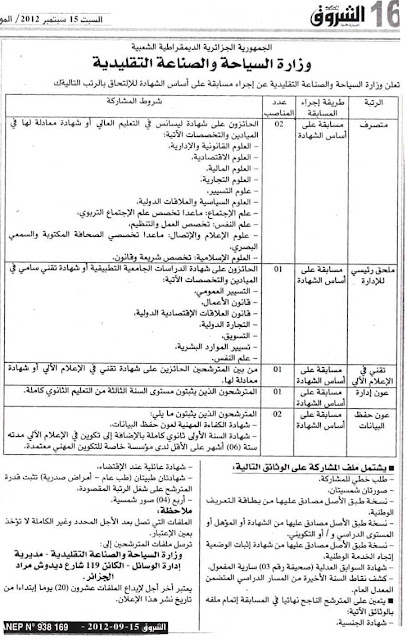 16
الشروق
السبت 15 سبتمبر 2012 /
الجمهورية الجزائرية الديمقراطية الشعبية
وزارة السياحة والصناعة التقليدية
تعلن وزارة السياحة والصناعة التقليدية عن إجراء مسابقة على أساس الشهادة للإلتحاق بالرتب التالية:
الرتبة
طريقة إجراء المسابقة
عدد المناصب
شروط المشاركة
متصرف
مسابقة على أساس الشهادة
02
الحائزون على شهادة ليسانس في التعليم العالي أو شهادة معادلة لها في
الميادين والتخصصات الآتية:
- العلوم القانونية والإدارية.
- العلوم الاقتصادية.
- العلوم المالية.
- العلوم التجارية.
- علوم التسيير.
- العلوم السياسية والعلاقات الدولية.
- علم الإجتماع: ماعدا تخصص علم الإجتماع التربوي.
- علم النفس: تخصص العمل والتنظيم.
- علوم الإعلام والإتصال: ماعدا تخصصي الصحافة المكتوبة والسمعي
البصري.
- العلوم الإسلامية: تخصص شريعة وقانون.
ملحق رئيسي للإدارة
مسابقة على أساس الشهادة
01
الحائزون على شهادة الدراسات الجامعية التطبيقية أو شهادة تقني سامي في
الميادين والتخصصات الآتية:
- التسيير العمومي.
- قانون الأعمال.
- قانون العلاقات الإقتصادية الدولية.
- التجارة الدولية.
- التسويق.
- تسيير الموارد البشرية.
- علم النفس.
تقني في الإعلام الآلي
مسابقة على أساس الشهادة
01
من بين المترشحين الحائزين على شهادة تقني في الإعلام الآلي أو شهادة
معادلة لها.
عون إدارة
مسابقة على أساس الشهادة
01
المترشحون الذين يثبتون مستوى السنة الثالثة من التعليم الثانوي كاملة.
عون حفظ البيانات
مسابقة على أساس الشهادة
02
المترشحون الذين يثبتون ما يلي:
- شهادة الكفاءة المهنية لعون حفظ البيانات.
- شهادة السنة الأولى ثانوي كاملة بالإضافة إلى تكوين في الإعلام الآلي مدته
ستة (06) أشهر على الأقل لدى مؤسسة خاصة للتكوين المهني معتمدة.
يشتمل ملف المشاركة على الوثائق التالية:
- طلب خطي للمشاركة.
- صورتان شمسيتان.
- نسخة طبق الأصل مصادق عليها من بطاقة التعريف
الوطنية.
- نسخة طبق الأصل مصادق عليها من الشهادة أو المؤهل أو
المستوى الدراسي و / أو التكويني.
- نسخة طبق الأصل مصادق عليها من شهادة إثبات الوضعية
إتجاه الخدمة الوطنية.
- شهادة السوابق العدلية (صحيفة رقم 03) سارية المفعول.
- كشف نقاط السنة الأخيرة من المسار الدراسي المتضمن
المعدل العام.
يتعين على المترشح الناجح نهائيا في المسابقة إتمام ملفه
بالوثائق الآتية:
- شهادة الجنسية.
- شهادة عائلية عند الإقتضاء.
- شهادتان طبيتان (طب عام - أمراض صدرية) تثبت قدرة
المترشح على شغل الرتبة المقصودة.
- أربع (04) صور شمسية.
ملاحظة:
الملفات التي تصل بعد الأجل المحدد وغير الكاملة لا تؤخذ
بعين الإعتبار.
ترسل ملفات المترشحين إلى:
وزارة السياحة والصناعة التقليدية - مديرية
إدارة الوسائل - الكائن 119 شارع ديدوش مراد
الجزائر.
يعتبر آخر أجل لإيداع الملفات عشرون (20) يوما إبتداءا من
تاريخ نشر هذا الإعلان.
ANEP N° 938 169
الشروق 15-09-2012